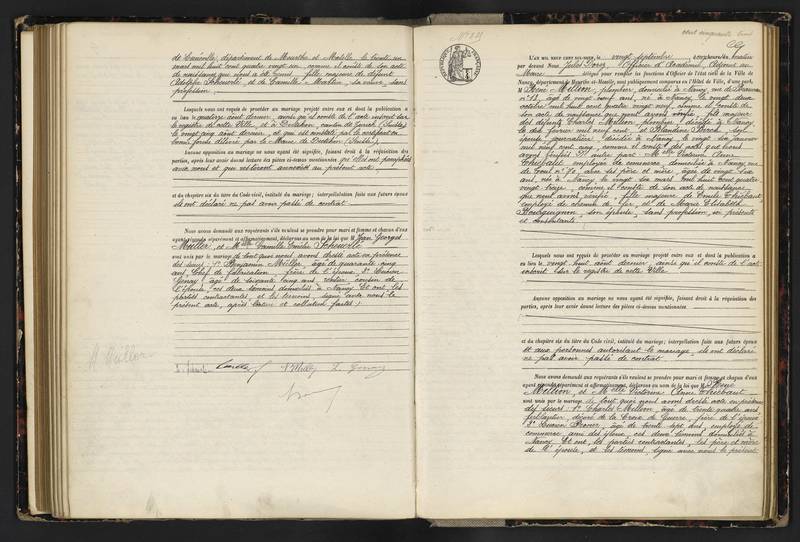 de Lunéville, département de Meurthe et Moselle, le trente un
mars mil huit cent quatre vingt six, comme il conste de son acte
de naissance fille majeure de défunt
Adolphe Scheuvlé et de Camille Martin, sa veuve, sans
profession,
Lesquels nous ont requis de procéder au mariage projeté entre eux et dont la publication a
eu lieu le quatorze août dernier, ainsi qu'il conste de l'acte inscrit sur
le registre de cette Ville, et à
le vingt cinq août dernier, et qui est constaté par le certificat en
bonne forme délivré par le Maire de (Suisse).
Aucune opposition au mariage ne nous ayant été signifiée, faisant droit à la réquisition des
parties, après leur avoir donné lecture des pièces ci-dessus mentionnées qu'elles ont paraphées
avec nous et qui resteront annexées au présent acte,
et du chapitre six du titre du Code civil, intitulé du mariage; interpellation faite aux futurs époux
ils ont déclaré ne pas avoir passé de contrat
Nous avons demandé aux requérants s'ils veulent se prendre pour mari et femme et chacun d'eux
ayant répondu séparément et affirmativement, déclarons au nom de la loi que M Jean Georges
Müller, et Melle Camille Emilie Scheuvlé
sont unis par le mariage de tout quoi nous avons dressé acte en présence
des sieurs 1° Benjamin Müller, âgé de quarante cinq
ans, Chef de fabrication, frère de l'époux, 2°
Genay, âgé de soixante cinq ans, rentier, cousin de
l'épouse, ces deux témoins domiciliés à Nancy. Et ont, les
parties contractantes, et les témoins, signé avec nous le
présent acte, après lecture et collation faites.
N° 829
L'AN MIL NEUF CENT DIX-NEUF, le vingt septembre
par devant Nous Jules Dorez, Officier d'Académie, Adjoint au
Maire délégué pour remplir les fonctions d'Officier de l'état civil de la Ville de
Nancy, département de Meurthe-et-Moselle, sont publiquement comparus en l'Hôtel de Ville, d'une part,
M. René Million, plombier, domicilié à Nancy, rue de
N° 13, âgé de vingt neuf ans, né à Nancy, le vingt deux
octobre mil huit cent quatre vingt neuf, comme il conste de
son acte de naissance que nous avons vérifié, fils majeur
des défunts Charles Million, plombier, décédé à Nancy
le dix février mil neuf cent et Blandine son
épouse, journalière, décédée à Nancy le vingt six janvier
mil neuf cent cinq, comme il conste des actes que nous
avons vérifiés. Et d'autre part: Melle Victorine Anne
Thiébaut, employée de commerce, domiciliée à Nancy, rue
de Toul n° 70, chez ses père et mère, âgée de vingt six
ans, née à Nancy, le vingt six mars mil huit cent quatre
vingt treize, comme il conste de son acte de naissance
que nous avons vérifié, fille majeure de Emile Thiébaut,
employé de chemin de fer, et de Marie Elisabeth
Bourguignon, son épouse, sans profession, ici présents
et consentants
Lesquels nous ont requis de procéder au mariage projeté entre eux et dont la publication a
eu lieu le vingt huit août dernier, ainsi qu'il conste de l'acte
inscrit sur le registre de cette Ville
Aucune opposition au mariage ne nous ayant été signifiée, faisant droit à la réquisition des
parties, après leur avoir donné lecture des pièces ci-dessus mentionnées
et du chapitre six du titre du Code civil, intitulé du mariage; interpellation faite aux futurs époux
et aux personnes autorisant le mariage, ils ont déclaré
ne pas avoir passé de contrat
Nous avons demandé aux requérants s'ils veulent se prendre pour mari et femme et chacun d'eux
ayant répondu séparément et affirmativement, déclarons au nom de la loi que M René
Million, et Melle Victorine Anne Thiébaut
sont unis par le mariage de tout quoi nous avons dressé acte en présence
des sieurs: 1° Charles Million, âgé de trente quatre ans,
ferblantier, décoré de la Croix de Guerre, frère de l'époux
2° âgé de trente sept ans, employé de
commerce, ami des époux, ces deux témoins domiciliés à
Nancy. Et ont, les parties contractantes, les père et mère
de l'épouse, et les témoins, signé avec nous le présent